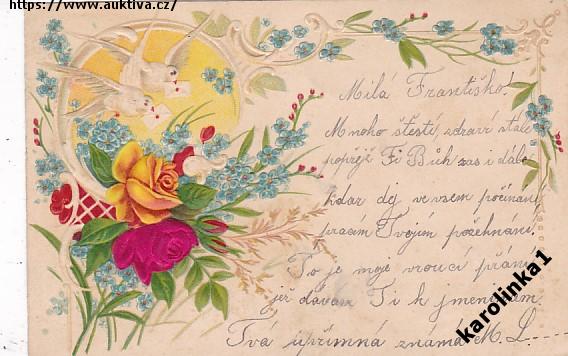 https://www.auktiva.cz/
Milá Františko!
Mnoho štestý, zdraví stále
popřejž Ti Bůh zas i dále
kdar dej ve vsem počínání
pracím Tvojím požehnaní!
To je moje vroucí přání
jež dávám Ti k jmeninám.
Tvá upřímná známá M. L.
karolinka1